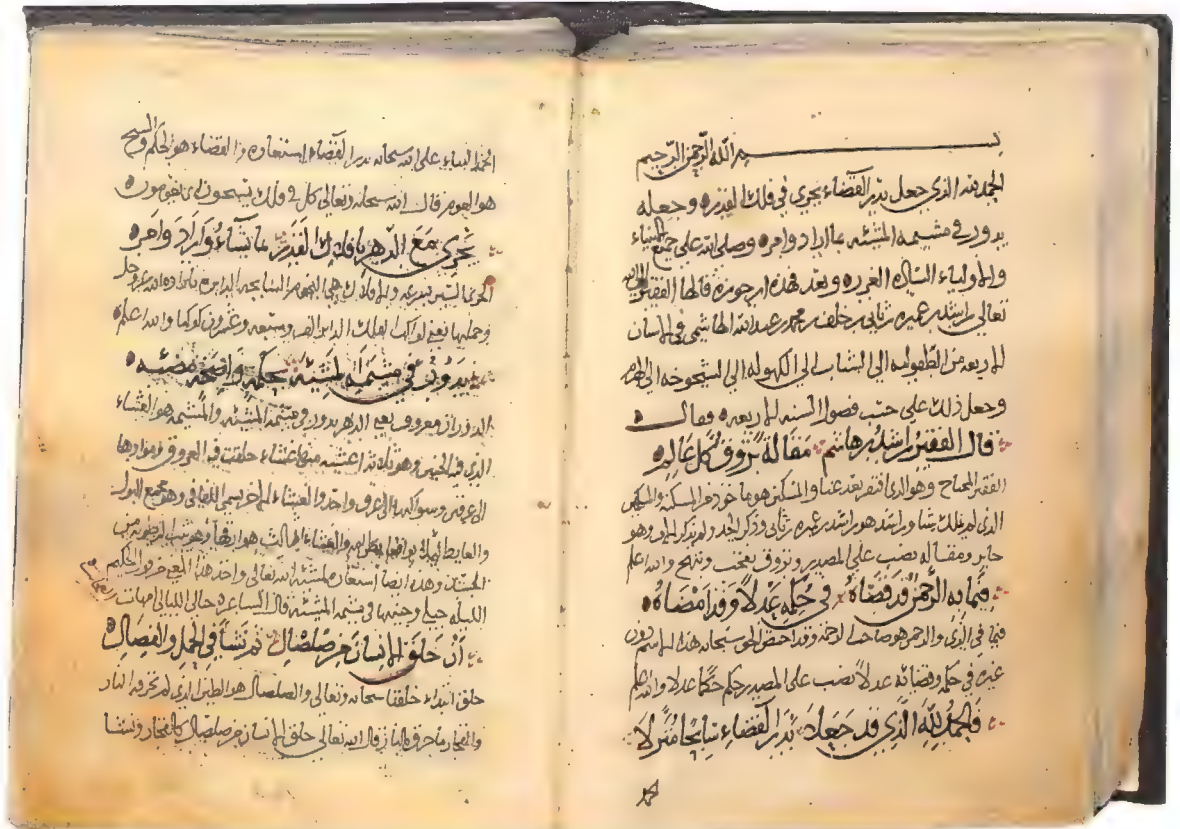 بسم الله الرحمن الرحيم
الحمد لله الذي جعل بدر القضاء يجري في فلك القدره وجعله
يدور في مشيمه المشئه عاما اراد وامره وصلى الله على جميع انبياء
والاولياء الساده الغرره وبعد فهذه ارجوزه قالها الفقير لله
تعالى راشد بن عميره بن ثاني بن خلف بن محمد بن عبد الله الهاشمي في الانسان
الاربعه من الطفوليه الى الشباب الى الكهوله الى الشيخوخه الى الهرم
وجعل ذلك على حسب فصول السنه الاربعه وقال
قال الفقير راشد بن هاشم مقالة تروق كل عالم
الفقير المحتاج وهو الذي افتقر بعد غنا والمسكين هو ما خوذ من المسكنه والمسكين
الذي لم يملك شيا وراشد هو راشد بن عميره بن ثاني وذكر الجد ولم يذكر الاب وهو
جايز ومقاله نصب على المصدر وتروق بمعنى وتبهج والله اعلم
فيما به الرحمن قد قضاه في حكمه عدلا وقد امضاه
فيما في الذي والرحمن هو صاحب الرحمة وقد اختص الحق سبحانه هذا الاسم دون
غيره في حكمه وقضائه عدلا نصب على المصدر حكم حكما عدلا والله اعلم
فالحمد لله الذي قد جعلا بدر القضاء سابحا منزلا
على الله سبحانه بدر القضاء استعاره والقضاء هو الحكم والسبح
هو العوم قال الله سبحانه وتعالى كل في فلك يسبحون اي يعومون
يجري مع الدهر بافلاك القدر بما يشاء واراد وامر
والافلاك هي النجوم السابحه الدايره باراده الله عز وجل
وجملها الف وسبعه وعشرون كوكبا والله اعلم
يدور في مشيمة المشئه حكمة واضحة مضئه
الدوران معروف يعني الدهر يدور في مشيمة المشئه والمشيمه هو الغشاء
الذي فيه الجنين وهو ثلاثه اغشيه منها غشاء خلقت فيه العروق
الى عرقين وسواكنها الى عرق واحد والغشاء الاخر يسمى اللفافي وهو مجمع البول
والغشاء الثالث
الجنين وهذه ايضا استعاره لمشئة الله تعالى واخذ هذا المعنى من قول الحكيم
الليله حبلى وجنينها في مشيمة المشئه قال الشاعر حالي الليالي امهات
ان خلق الانسان من صلصال ثم نشا في الحمل والفصال
خلق ابتداء خلقنا سبحانه وتعالى والصلصال هو الطين الذي لم تحرقه النار
والفخار ما حرق بالنار قال الله تعالى خلق الانسان من صلصال كالفخار ونشا